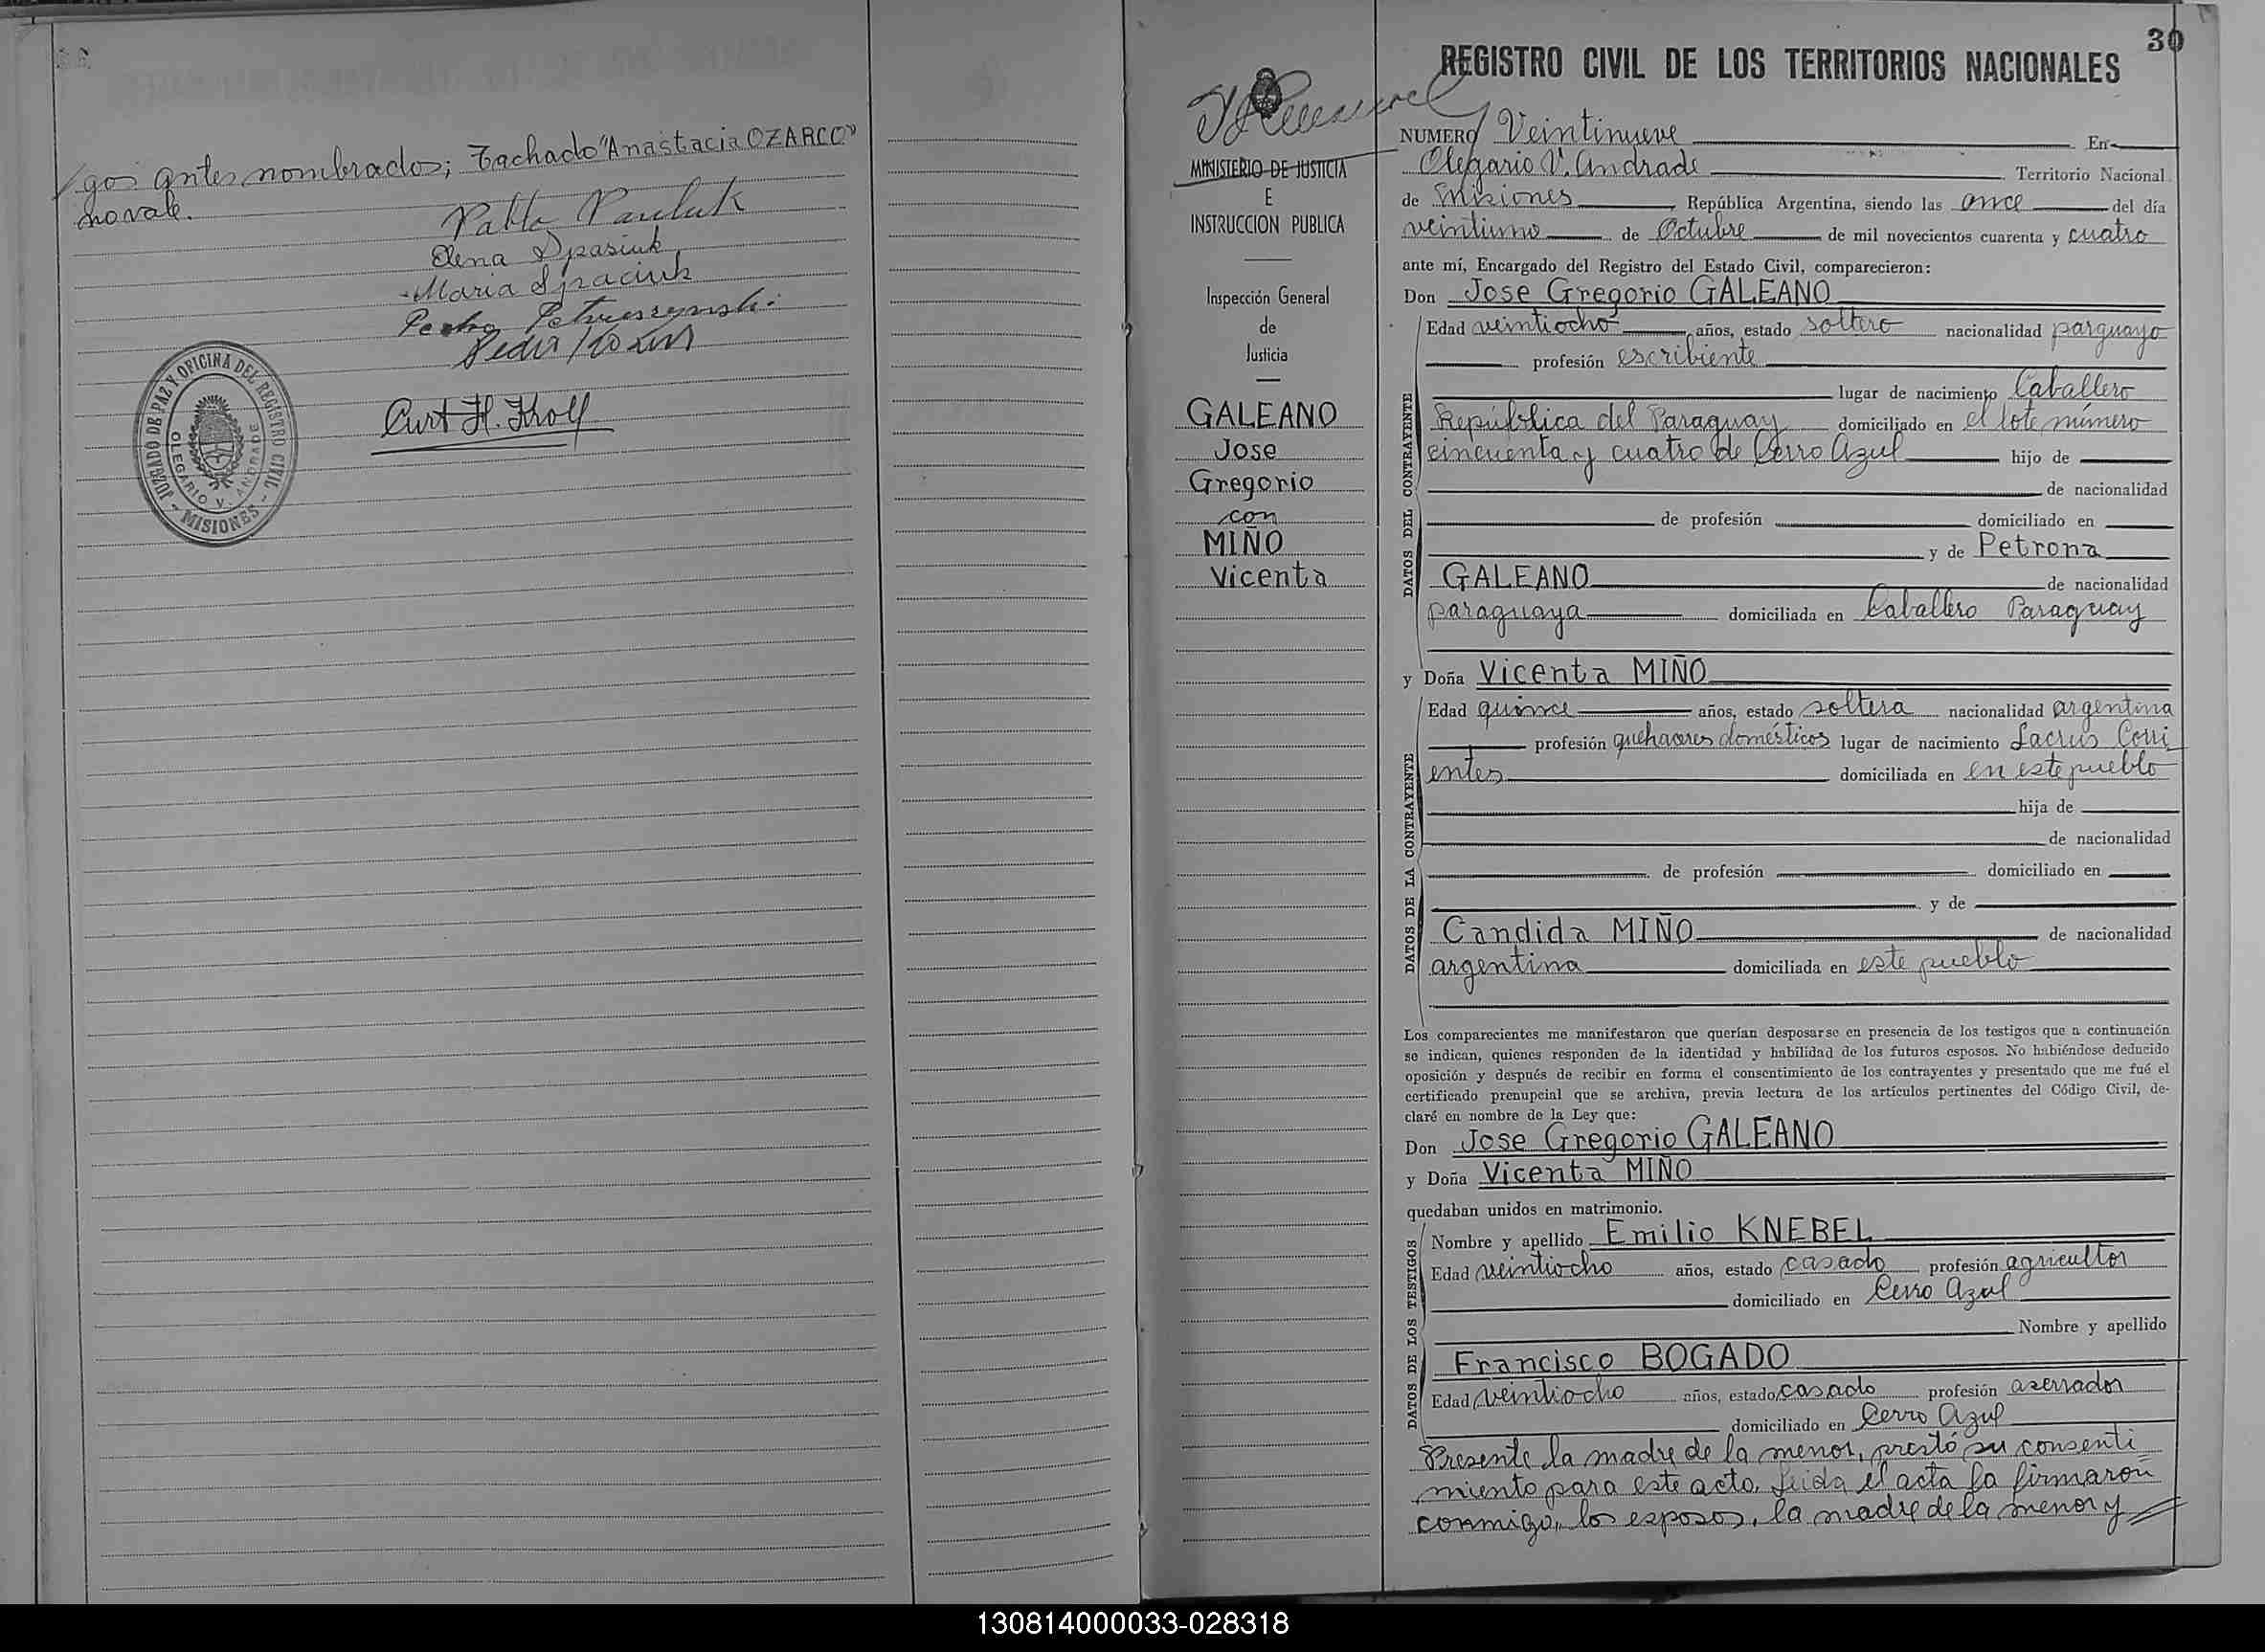 gos antes nombrados; Tachado "Anastacia OZARCO"
no vale.
Pablo Pauluk
Elena Spasiuk
Maria Spaciuk
Pedro
Pedro
Curt H. Kroll
JUZGADO DE PAZ Y OFICINA DEL REGISTRO CIVIL - MISIONES -
OLEGARIO V. ANDRADE
30
REGISTRO CIVIL DE LOS TERRITORIOS NACIONALES
MINISTERIO DE JUSTICIA
E
INSTRUCCION PUBLICA
Inspección General
de
Justicia
GALEANO
Jose
Gregorio
con
MIÑO
Vicenta
NUMERO Veintinueve En
Olegario V. Andrade Territorio Nacional
de Misiones, República Argentina, siendo las once del día
veintiuno de Octubre de mil novecientos cuarenta y cuatro
ante mí, Encargado del Registro del Estado Civil, comparecieron:
Don Jose Gregorio GALEANO
DATOS DEL CONTRAYENTE
Edad veintiocho años, estado soltero nacionalidad parguayo
profesión escribiente
lugar de nacimiento Caballero
República del Paraguay domiciliado en el lote número
cincuenta y cuatro de Cerro Azul hijo de
de nacionalidad
de profesión domiciliado en
y de Petrona
GALEANO de nacionalidad
paraguaya domiciliada en Caballero Paraguay
y Doña Vicenta MIÑO
DATOS DE LA CONTRAYENTE
Edad quince años, estado soltera nacionalidad argentina
profesión quehaceres domésticos lugar de nacimiento Lacrus Corri
entes domiciliada en en este pueblo
hija de
de nacionalidad
de profesión domiciliado en
y de
Candida MIÑO de nacionalidad
argentina domiciliada en este pueblo
Los comparecientes me manifestaron que querían desposarse en presencia de los testigos que a continuación
se indican, quienes responden de la identidad y habilidad de los futuros esposos. No habiéndose deducido
oposición y después de recibir en forma el consentimiento de los contrayentes y presentado que me fué el
certificado prenupcial que se archiva, previa lectura de los artículos pertinentes del Código Civil, de-
claré en nombre de la Ley que:
Don Jose Gregorio GALEANO
y Doña Vicenta MIÑO
quedaban unidos en matrimonio.
DATOS DE LOS TESTIGOS
Nombre y apellido Emilio KNEBEL
Edad veintiocho años, estado casado profesión agricultor
domiciliado en Cerro Azul
Nombre y apellido
Francisco BOGADO
Edad veintiocho años, estado casado profesión aserrador
domiciliado en Cerro Azul
Presente la madre de la menor, prestó su consenti
miento para este acto. Leida el acta la firmaron
conmigo, los esposos, la madre de la menor y
130814000033-028318